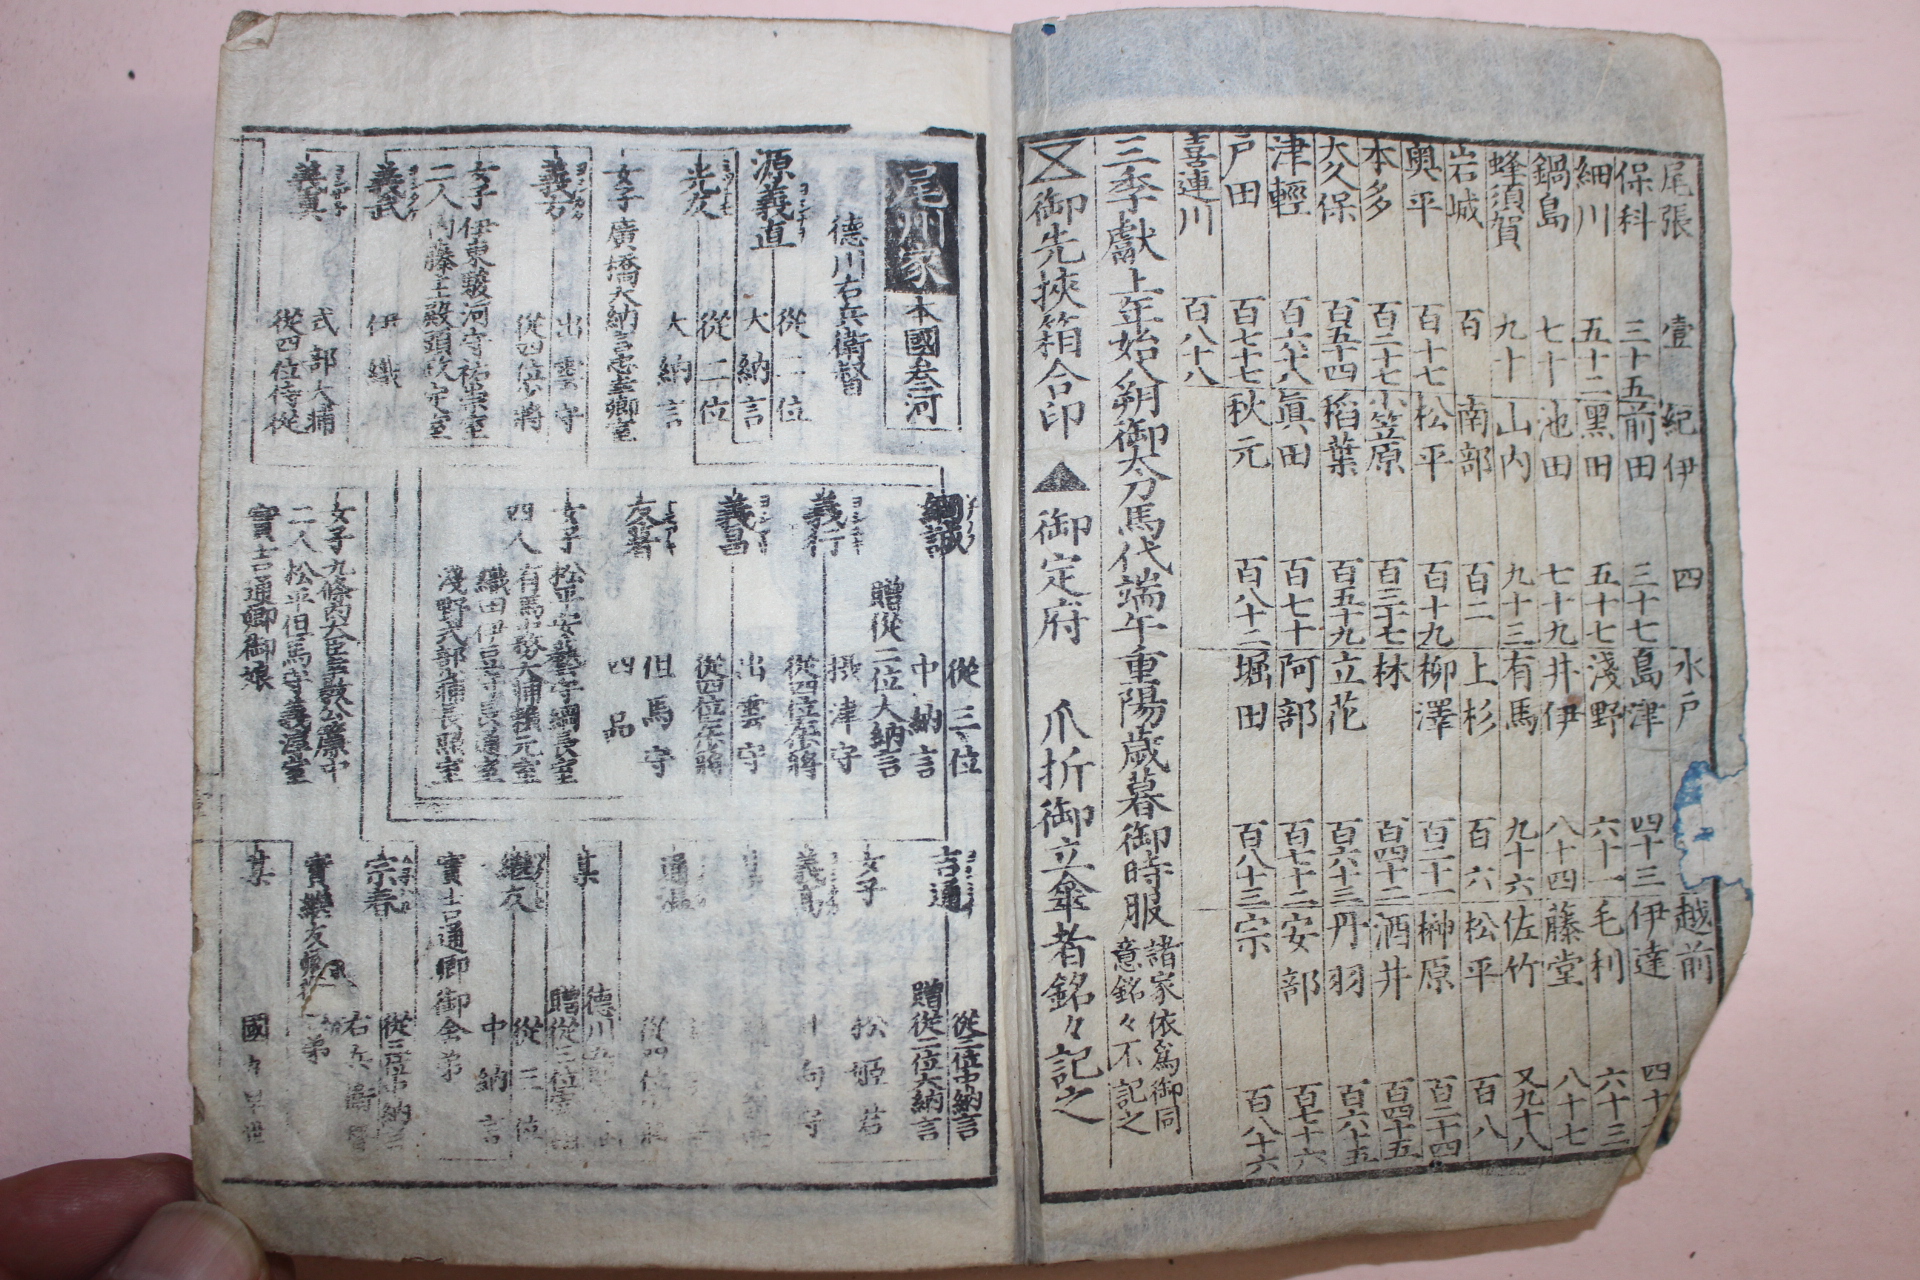 尾張 壹 紀伊 四 水戸 越前
保科 三十五 前田 三十七 島津 四十三 伊達
細川 五十二 黒田 五十七 淺野 六十一 毛利 六十三
鍋島 七十 池田 七十九 井伊 八十四 藤堂 八十七
蜂須賀 九十 山内 九十三 有馬 九十六 佐竹 又九十八
岩城 百 南部 百二 上杉 百六 松平 百八
奥平 百十七 松平 百十九 柳澤 百二十一 榊原 百二十四
本多 百二十七 小笠原 百三十七 林 百四十二 酒井 百四十五
大久保 百五十四 稻葉 百五十九 立花 百六十三 丹羽 百六十五
津輕 百六十八 眞田 百七十 阿部 百七十二 安部 百七十六
戸田 百七十七 秋元 百八十二 堀田 百八十三 宗 百八十六
喜連川 百八十八
三季獻上年始八朔御太刀馬代端午重陽歳暮御時服 諸家依爲御同
意銘々不記之
御先挾箱合印 ▲ 御定府 爪折御立傘者銘々記之
尾州家 本國参河
德川右兵衛督
源義直 從二位
大納言
光友 從二位
大納言
女子 廣橋大納言忠幸卿室
義方 出雲守
從四位少將
女子 伊東駿河守祐崇室
二人 内藤主殿頭政定室
義武 伊織
義眞 式部大輔
從四位侍從
綱誠 從三位
中納言
贈從二位大納言
義行 摂津守
從四位少將
義昌 出雲守
從四位少將
友著 但馬守
四品
女子 松平安藝守綱長室
四人 有馬中務大輔頼元室
織田伊豆守長通室
淺野式部少輔長照室
女子 九條内大臣幸教公簾中
二人 松平但馬守義淳室
實吉通卿御娘
吉通 從三位中納言
贈從二位大納言
女子 松姫君
某
繼友 從三位
中納言
實吉通卿御舍弟
宗春 從三位中納言
右兵衛督
某